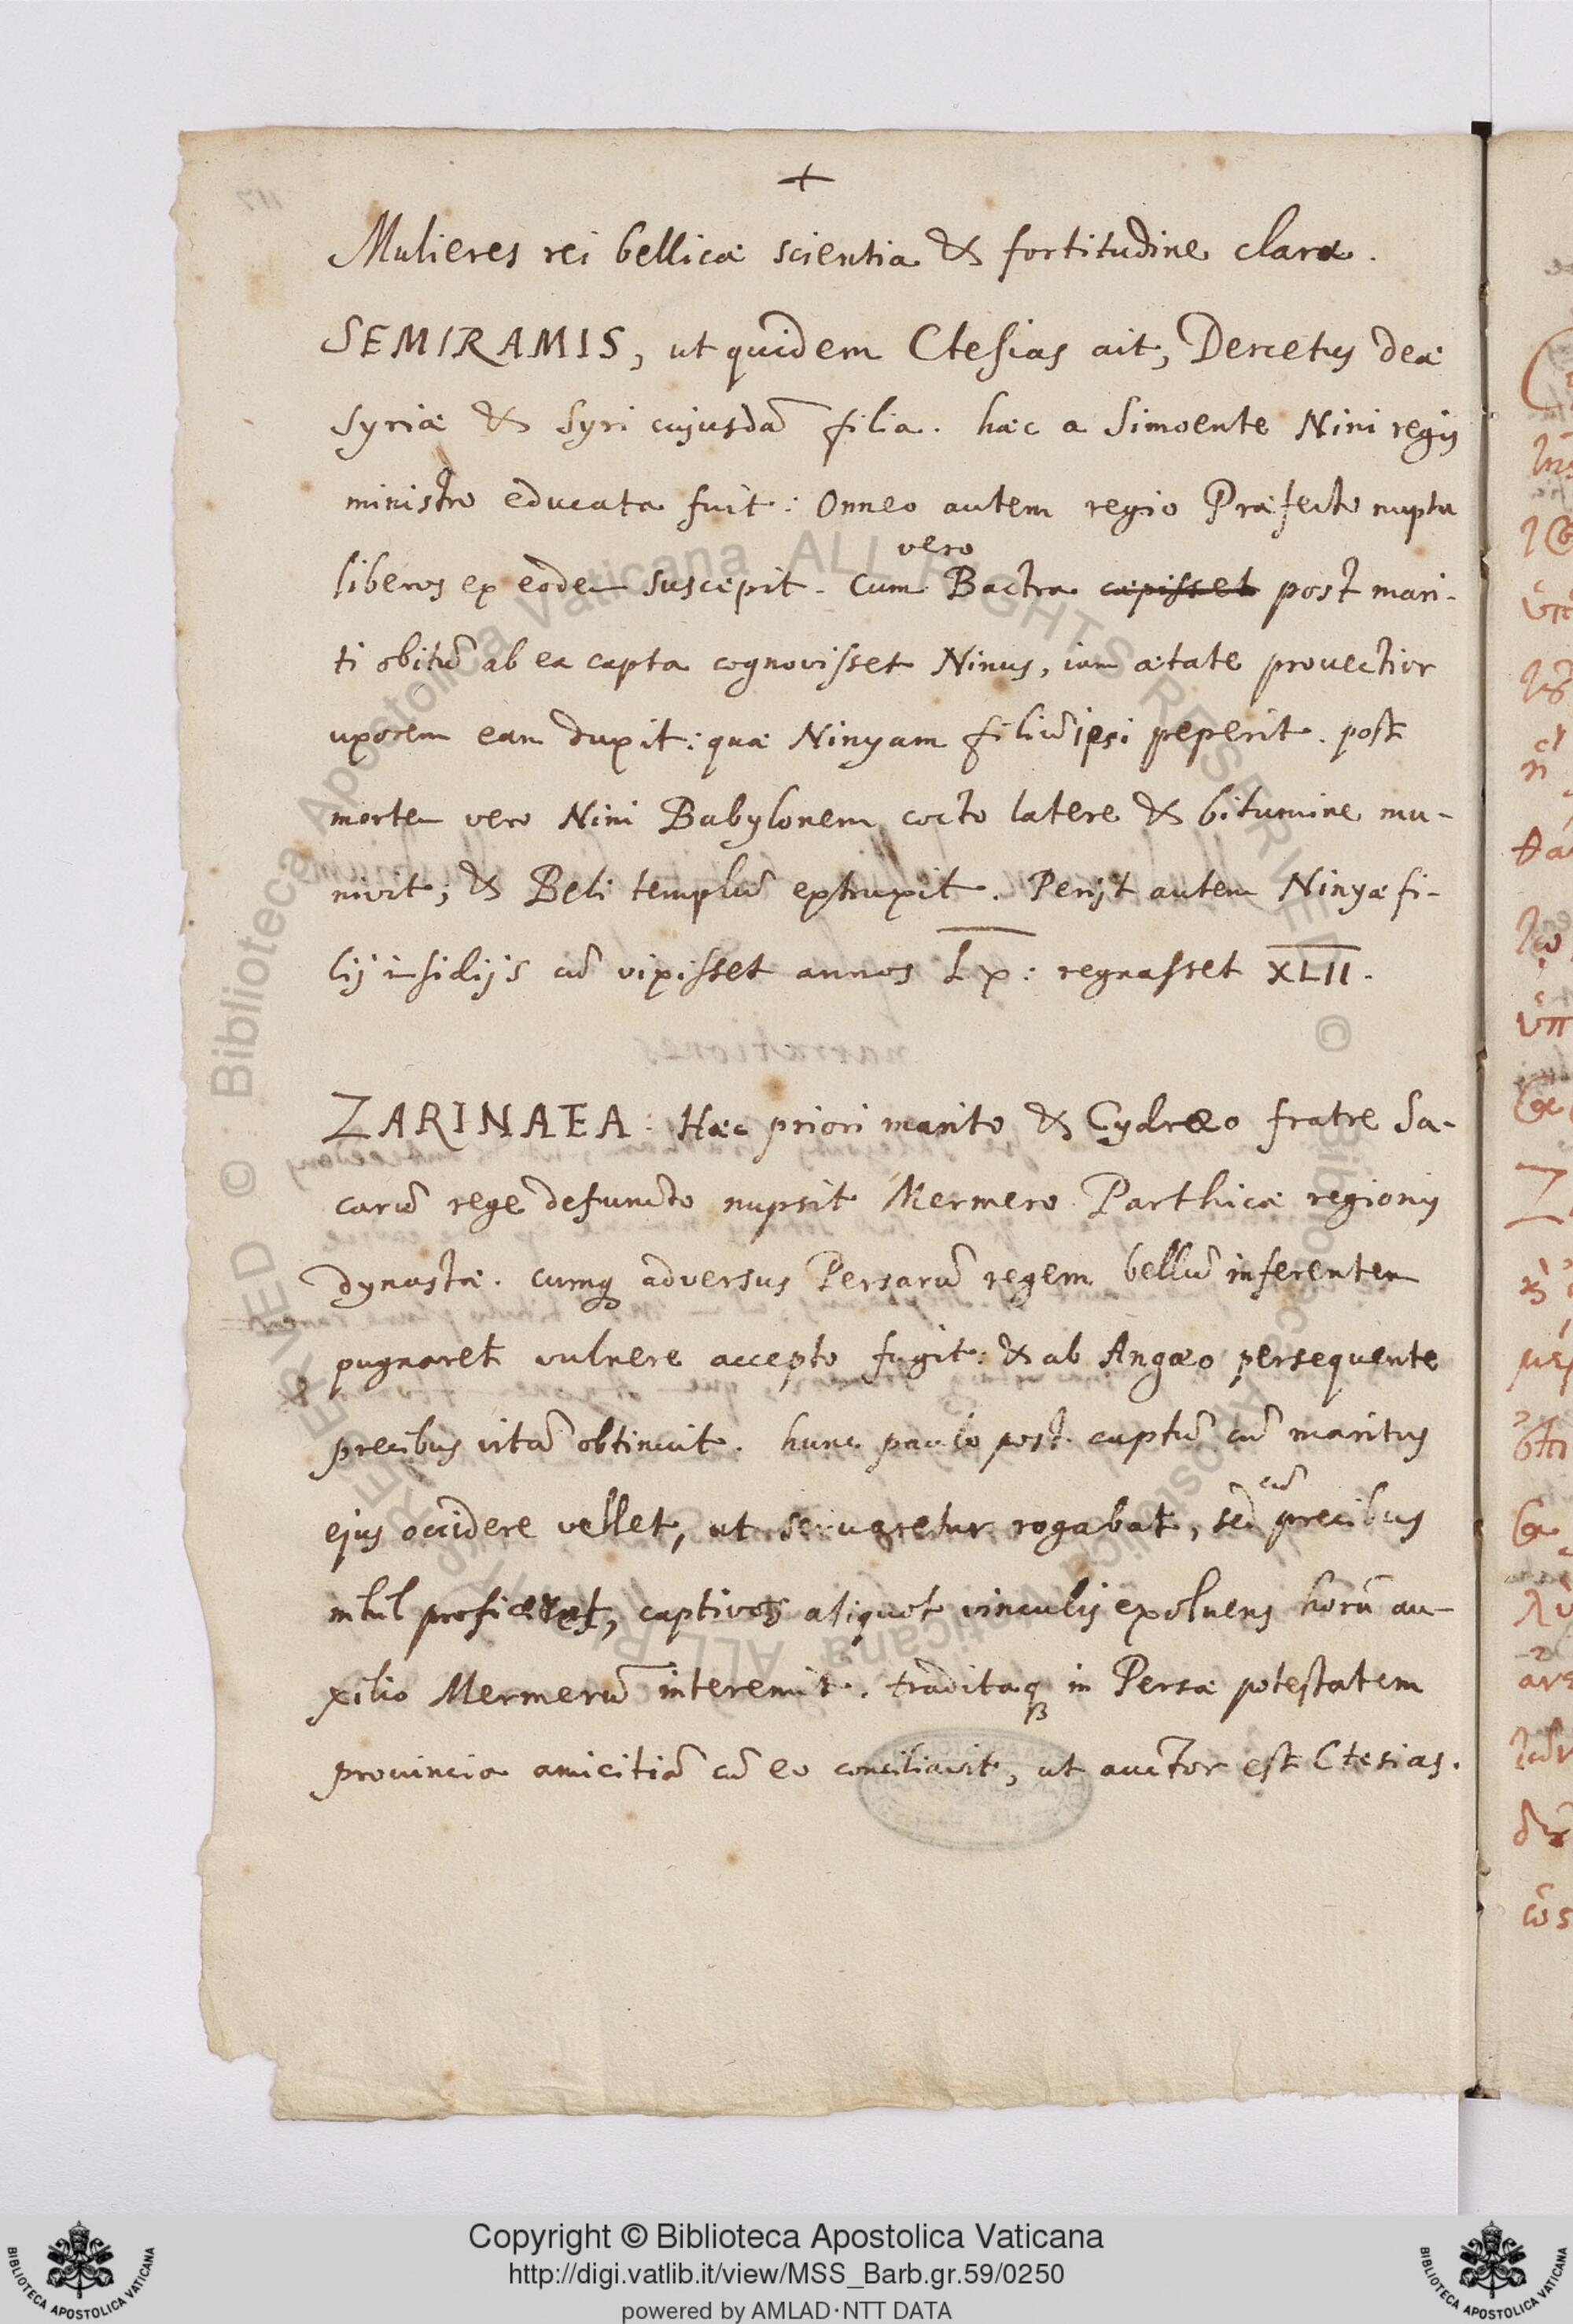 +
Mulieres rei bellicæ scientia & fortitudine claræ.
SEMIRAMIS, ut quidem Ctesias ait, Dercetus deæ
Syriæ & Syri cujusdā filia. hæc a Simoente Nini regis
ministro educata fuit: Onneo autem regio Præfecto nupta
vero
liberos ex eodem suscepit. Cum Bactra cæpisset post mari-
ti obitū ab ea capta cognovisset Ninus, iam ætate prouectior
uxorem eam duxit: quæ Ninyam filiū ipsi peperit. post
mortem vero Nini Babylonem cocto latere & bitumine mu-
nivit; & Beli templū extruxit. Perijt autem Ninyæ fi-
lij insidijs cū vixisset annos Lx: regnasset XLII.
ZARINAEA: Hæc priori marito & Cydræo fratre Sa-
carū rege defuncto nupsit Mermero Parthicæ regionis
dynastæ. cumq adversus Persarū regem bellū inferentem
pugnaret vulnere accepto fugit: & ab Angæo persequente
precibus vitā obtinuit. hunc paulo post captū cū maritus
cū
ejus occidere vellet, ut servaretur rogabat, sed precibus
nihil proficeret, captivos aliquot vinculis exoluens horū au-
xilio Mermerū interemit. traditaq in Persæ potestatem
prouincia amicitiā cū eo conciliavit, ut auctor est Ctesias.
© Biblioteca Apostolica Vaticana ALL RIGHTS RESERVED
Copyright © Biblioteca Apostolica Vaticana
http://digi.vatlib.it/view/MSS_Barb.gr.59/0250
powered by AMLAD·NTT DATA
BIBLIOTECA APOSTOLICA VATICANA
BIBLIOTECA APOSTOLICA VATICANA